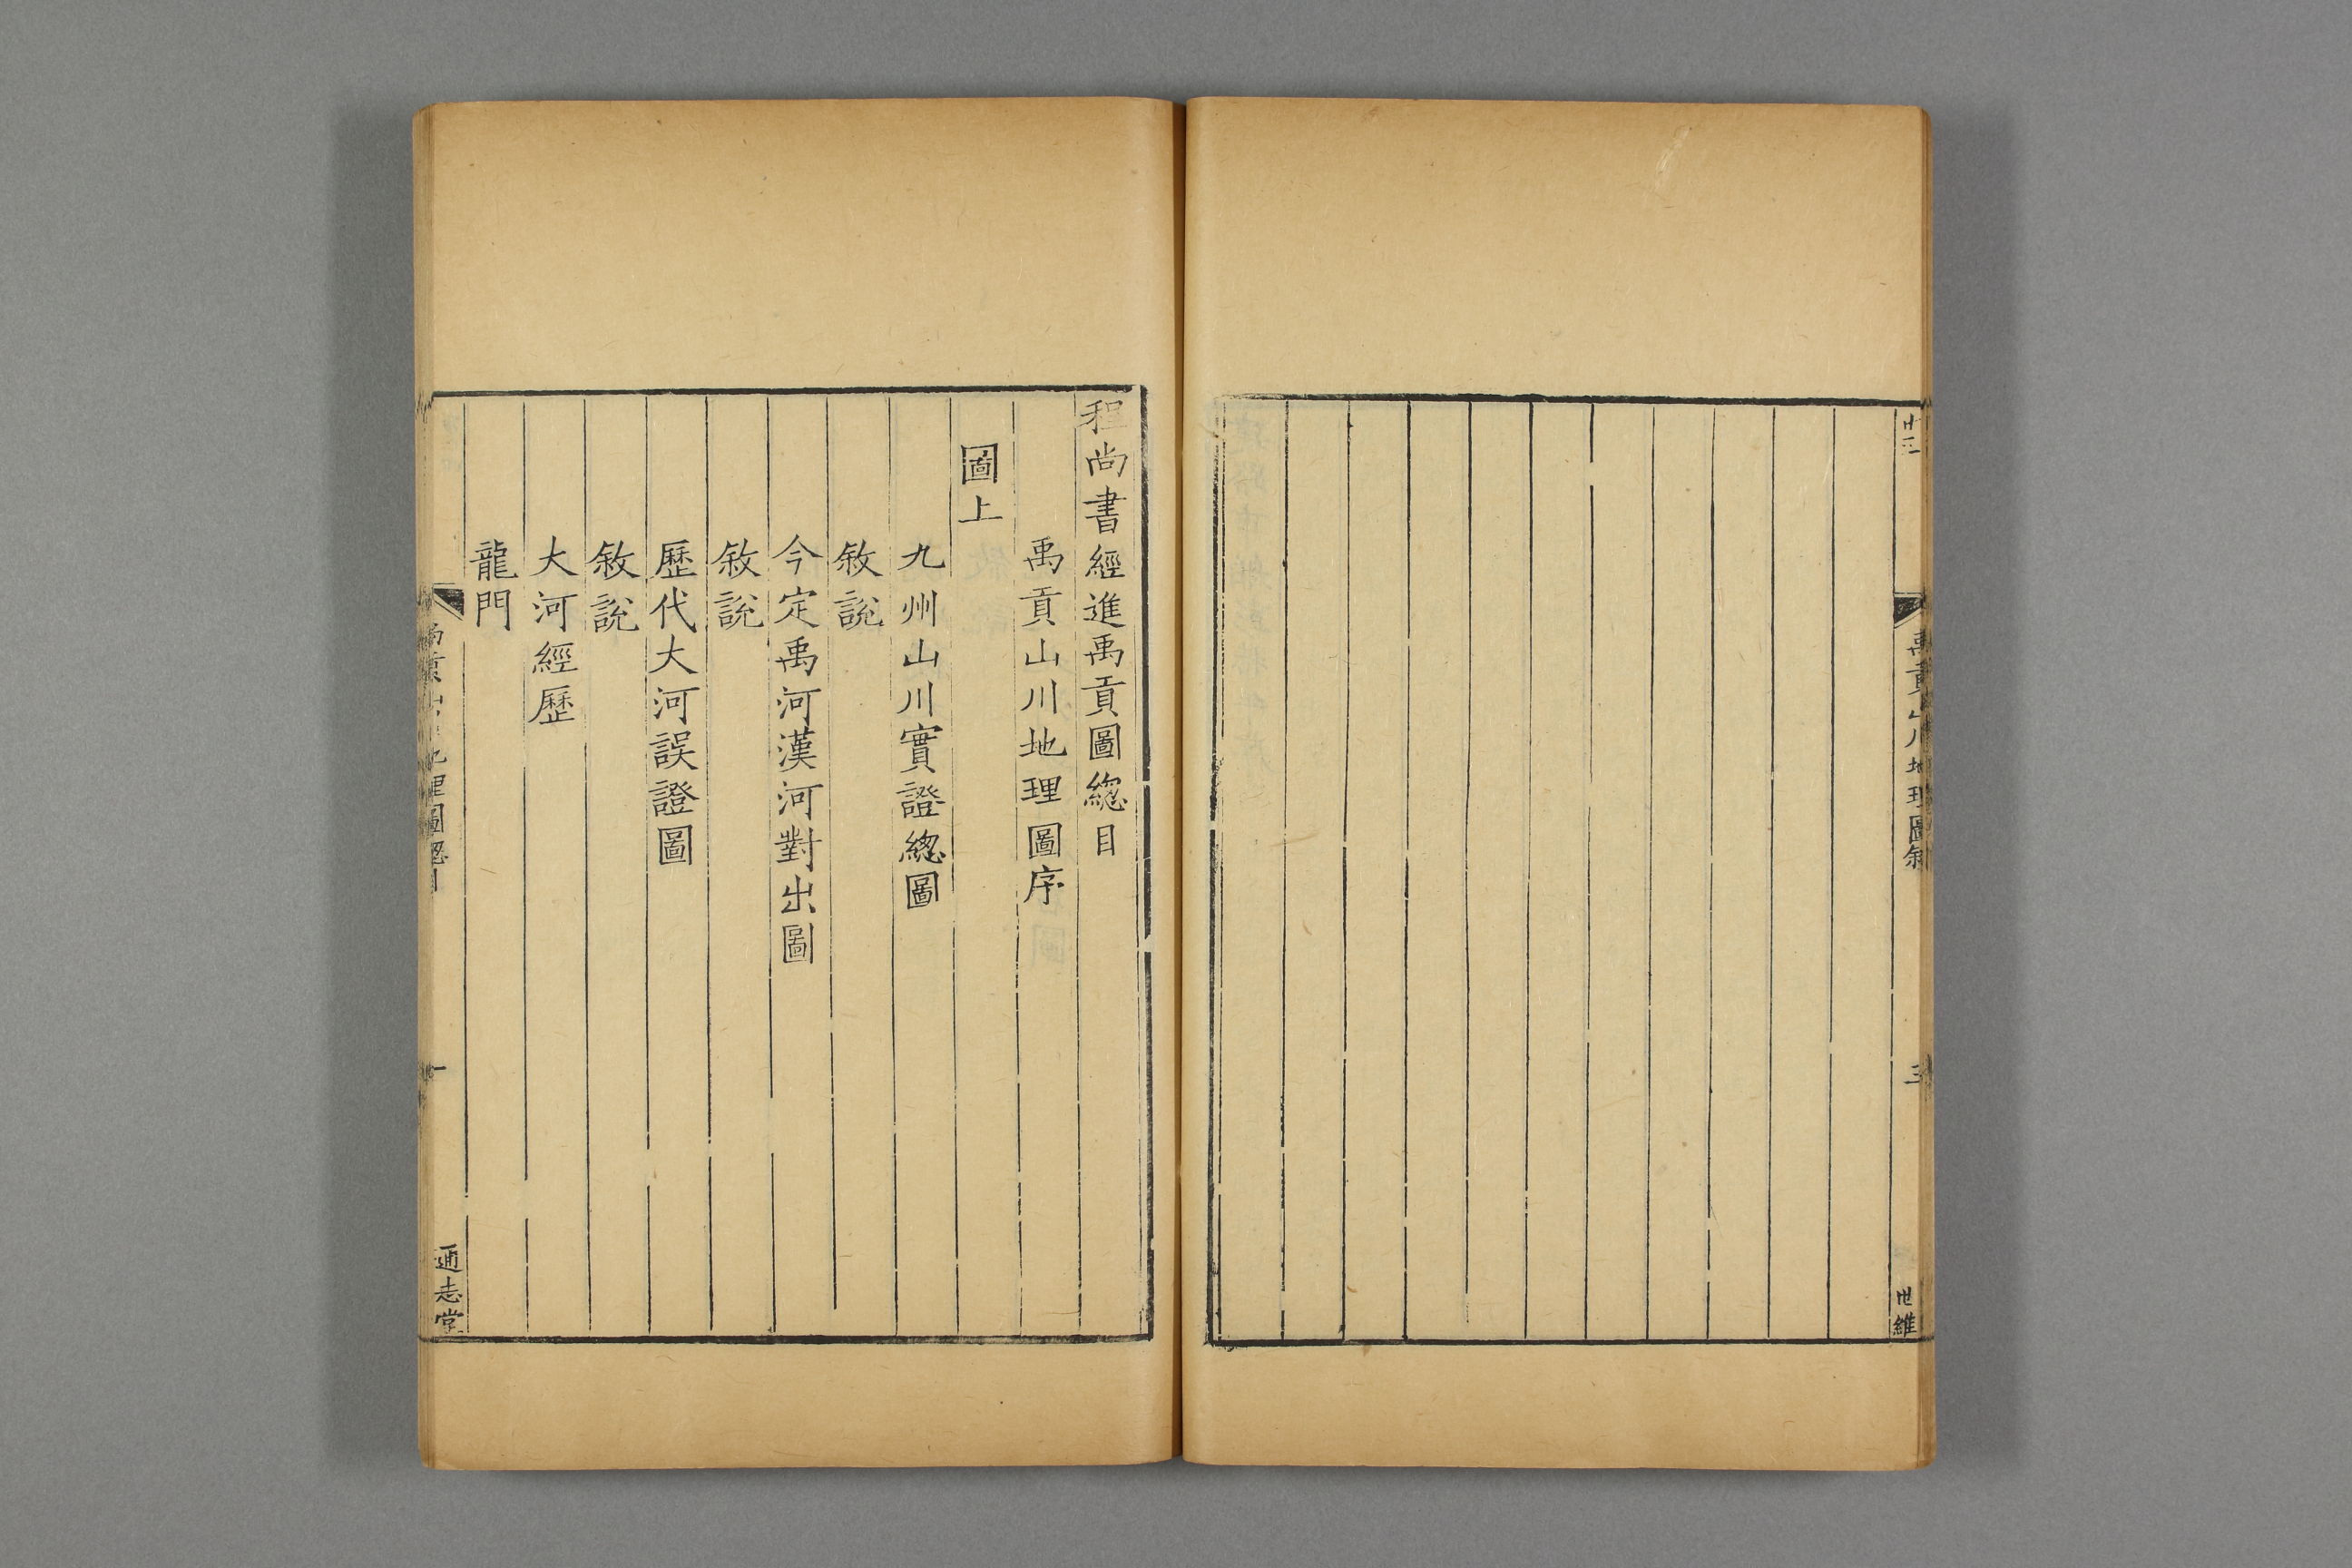 廿三
禹貢山川地理圖敘
三
世維
程尚書經進禹貢圖緫目
禹貢山川地理圖序
圖上
九州山川實證緫圖
敘説
今定禹河漢河對出圖
敘説
歷代大河誤證圖
敘説
大河經歷
龍門
禹貢山川地理圖緫目
一
通志堂